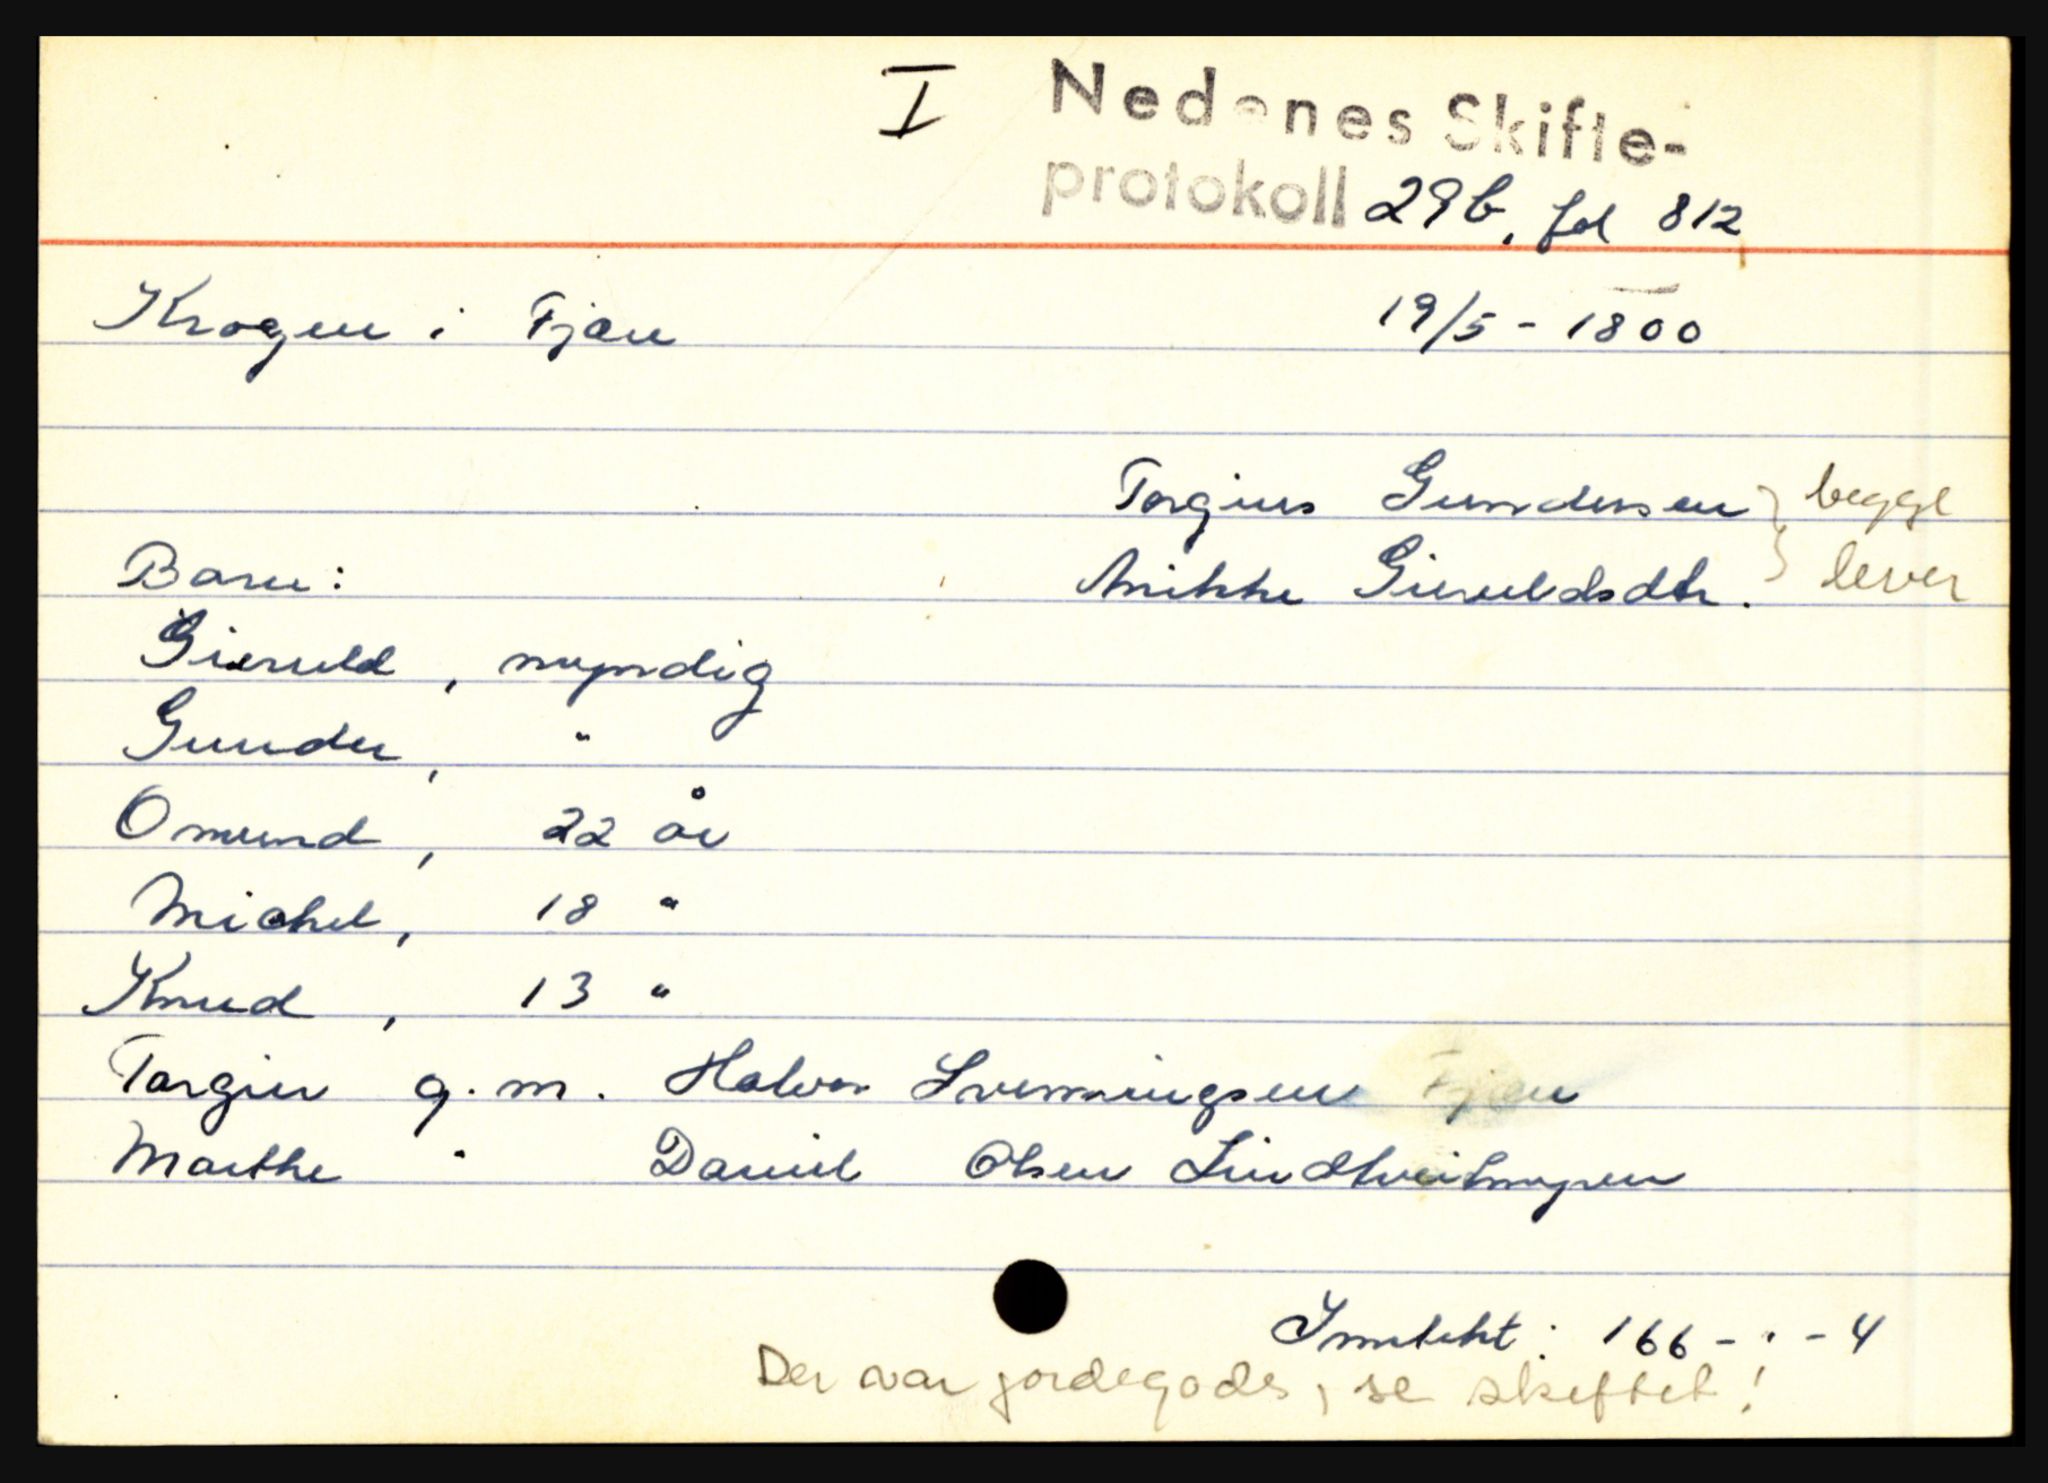 I Nedenes Skifte-
protokoll 29b, fol 812
Krogen i Fjære 19/5 - 1800
Torgius Gundersen } begge
Barn: Anikke Gieruldsdtr. } lever
Gieruld, myndig
Gunder, "
Omund, 22 år
Michel, 18 "
Knud, 13 "
Torgier g. m. Halvor Svenningsen Fjære
Marthe " Daniel Olsen Lindtveitmyren
Inntekt: 166 - · - 4
Der var jordegods, se skiftet!